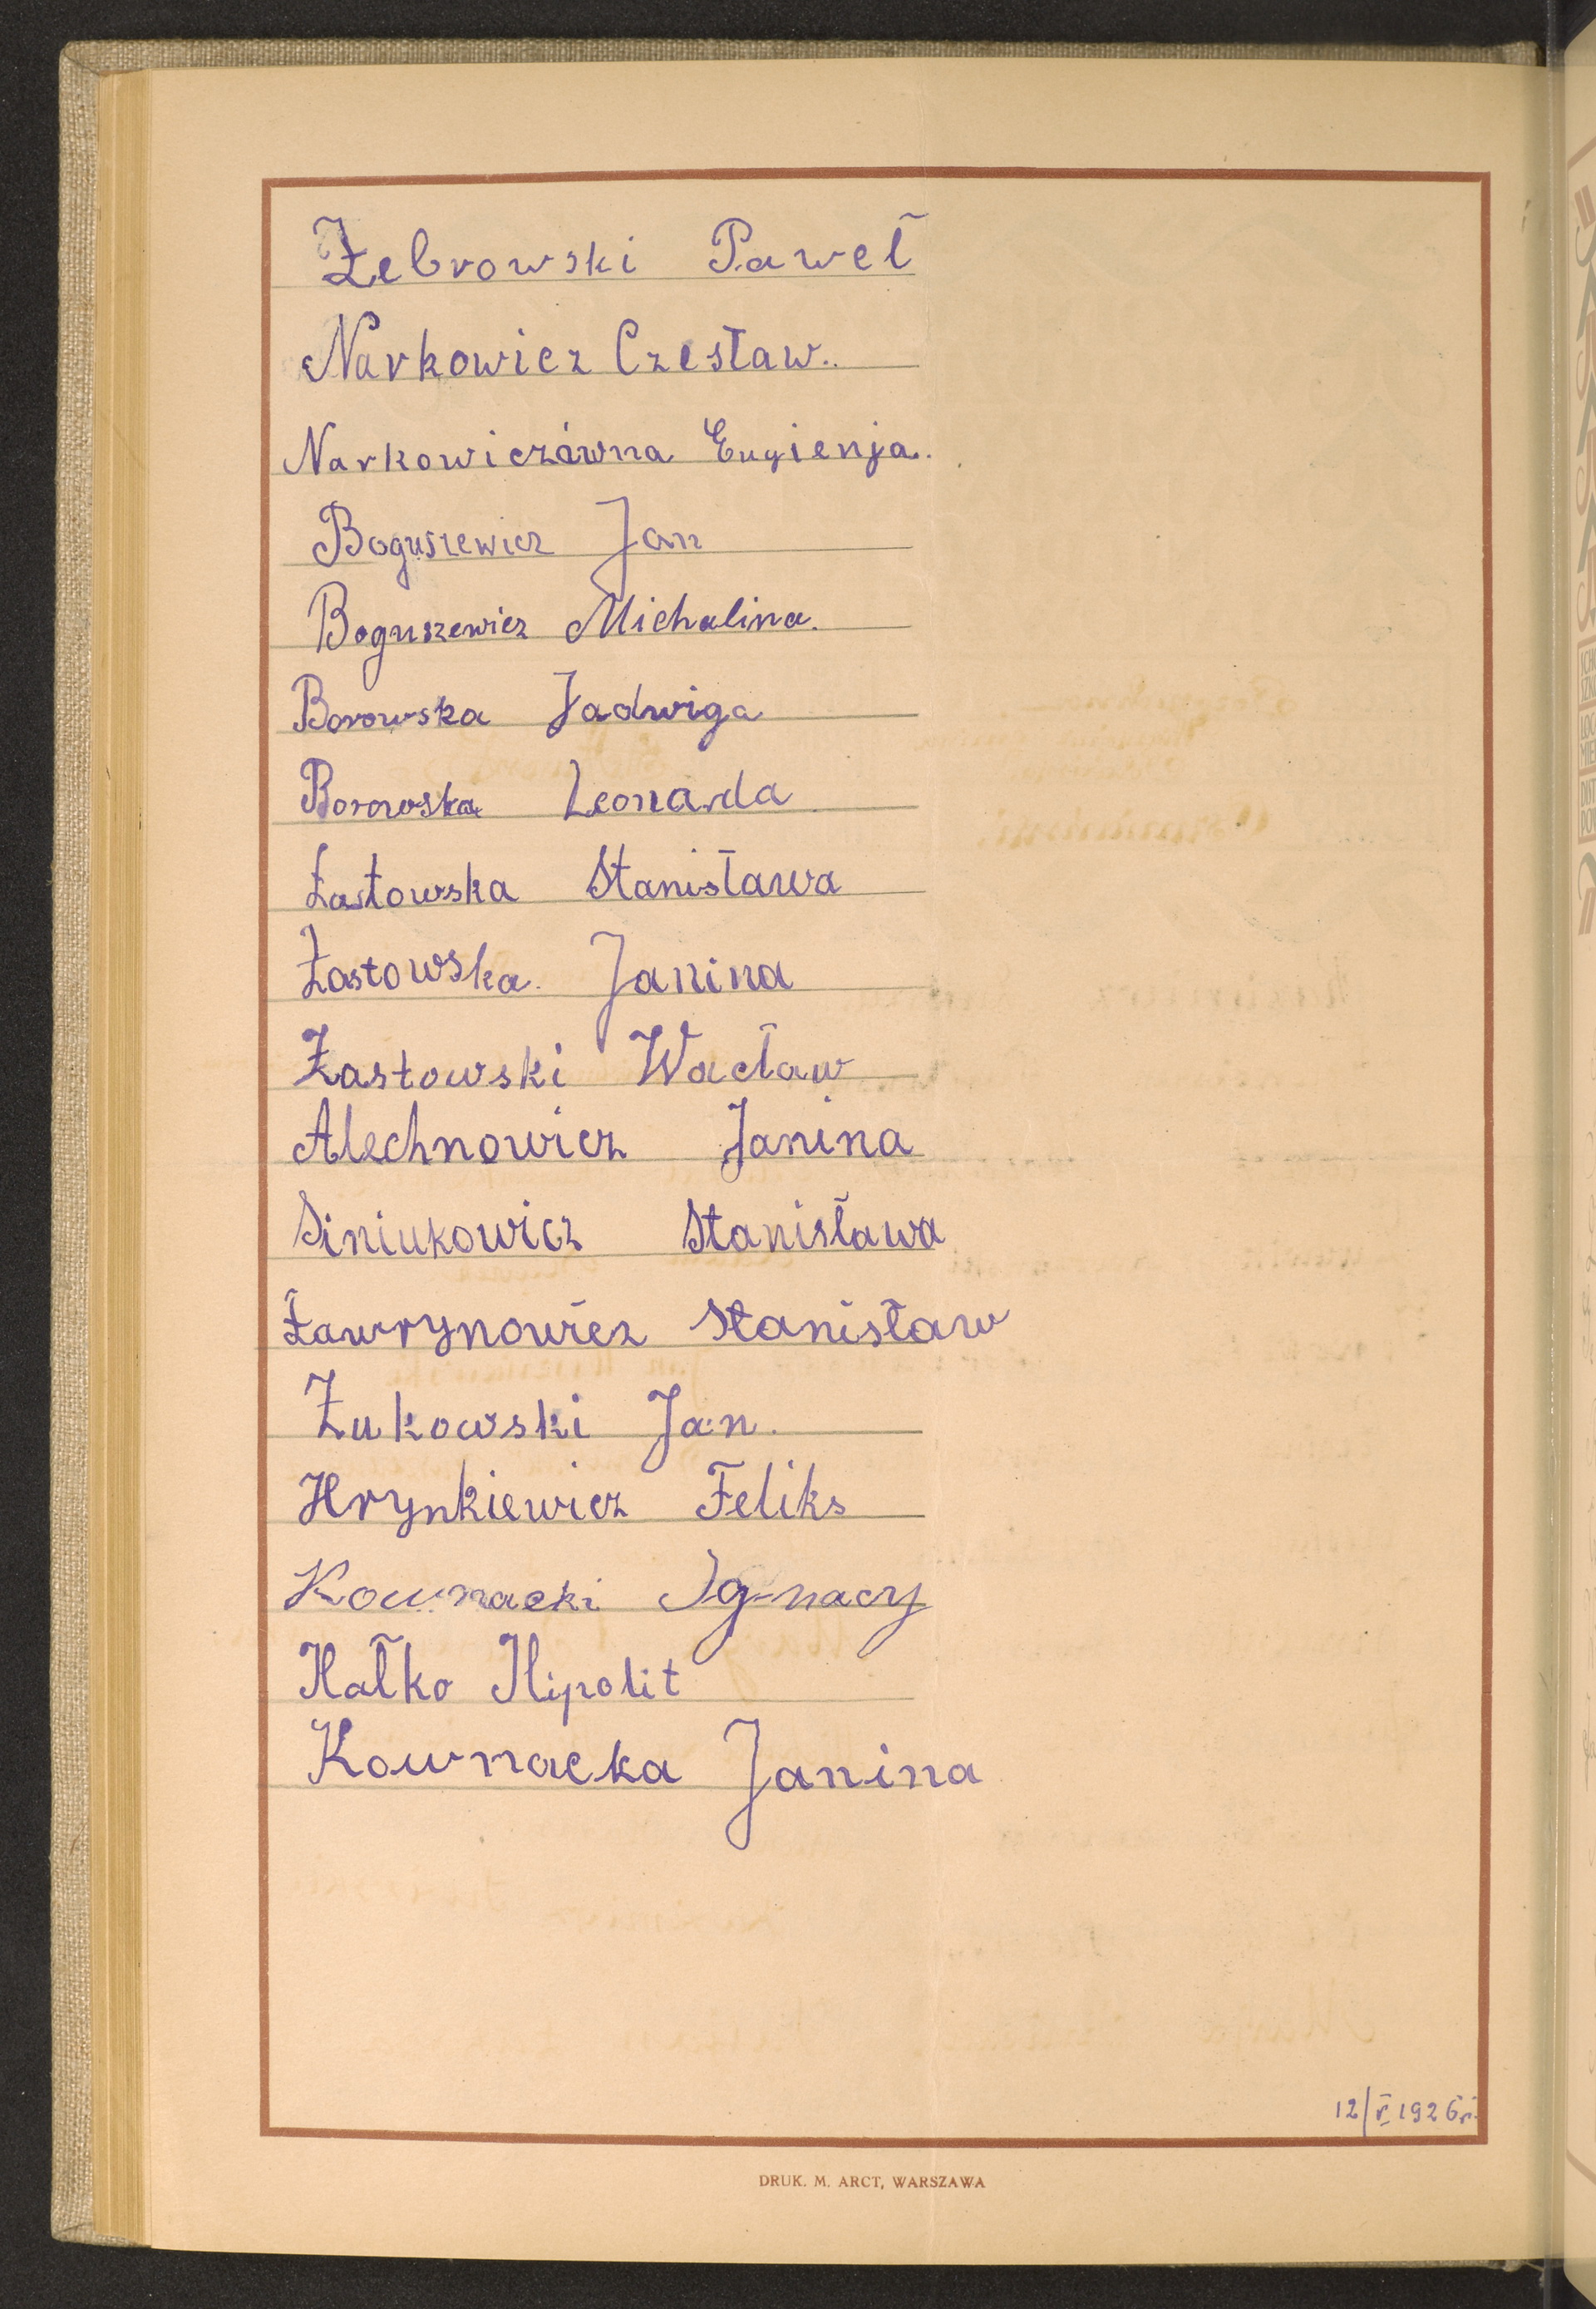 Żebrowski Paweł
Narkowicz Czesław.
Narkowiczówna Eugienja.
Boguszewicz Jan
Boguszewicz Michalina.
Borowska Jadwiga
Borowska Leonarda
Łastowska Stanisława
Łastowska Janina
Łastowski Wacław
Alechnowicz Janina
Siniukowicz Stanisława
Ławrynowicz Stanisław
Żukowski Jan.
Hrynkiewicz Feliks
Kownacki Ignacy
Hałko Hipolit
Kownacka Janina
12/V 1926 r.
DRUK. M. ARCT, WARSZAWA